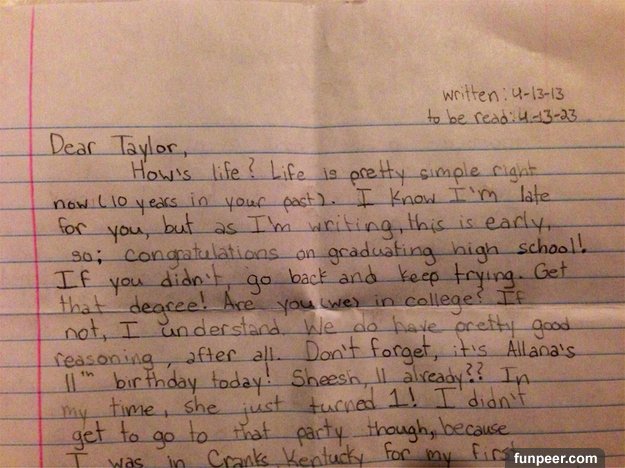 written: 4-13-13
to be read: 4-13-23
Dear Taylor,
How's life? Life is pretty simple right
now (10 years in your past). I know I'm late
for you, but as I'm writing, this is early,
so; congratulations on graduating high school!
If you didn't, go back and keep trying. Get
that degree! Are you (we) in college? If
not, I understand. We do have pretty good
reasoning, after all. Don't forget, it's Allana's
11th birthday today! Sheesh, 11 already?? In
my time, she just turned 1! I didn't
get to go to that party though, because
I was in Cranks, Kentucky for my first
funpeer.com